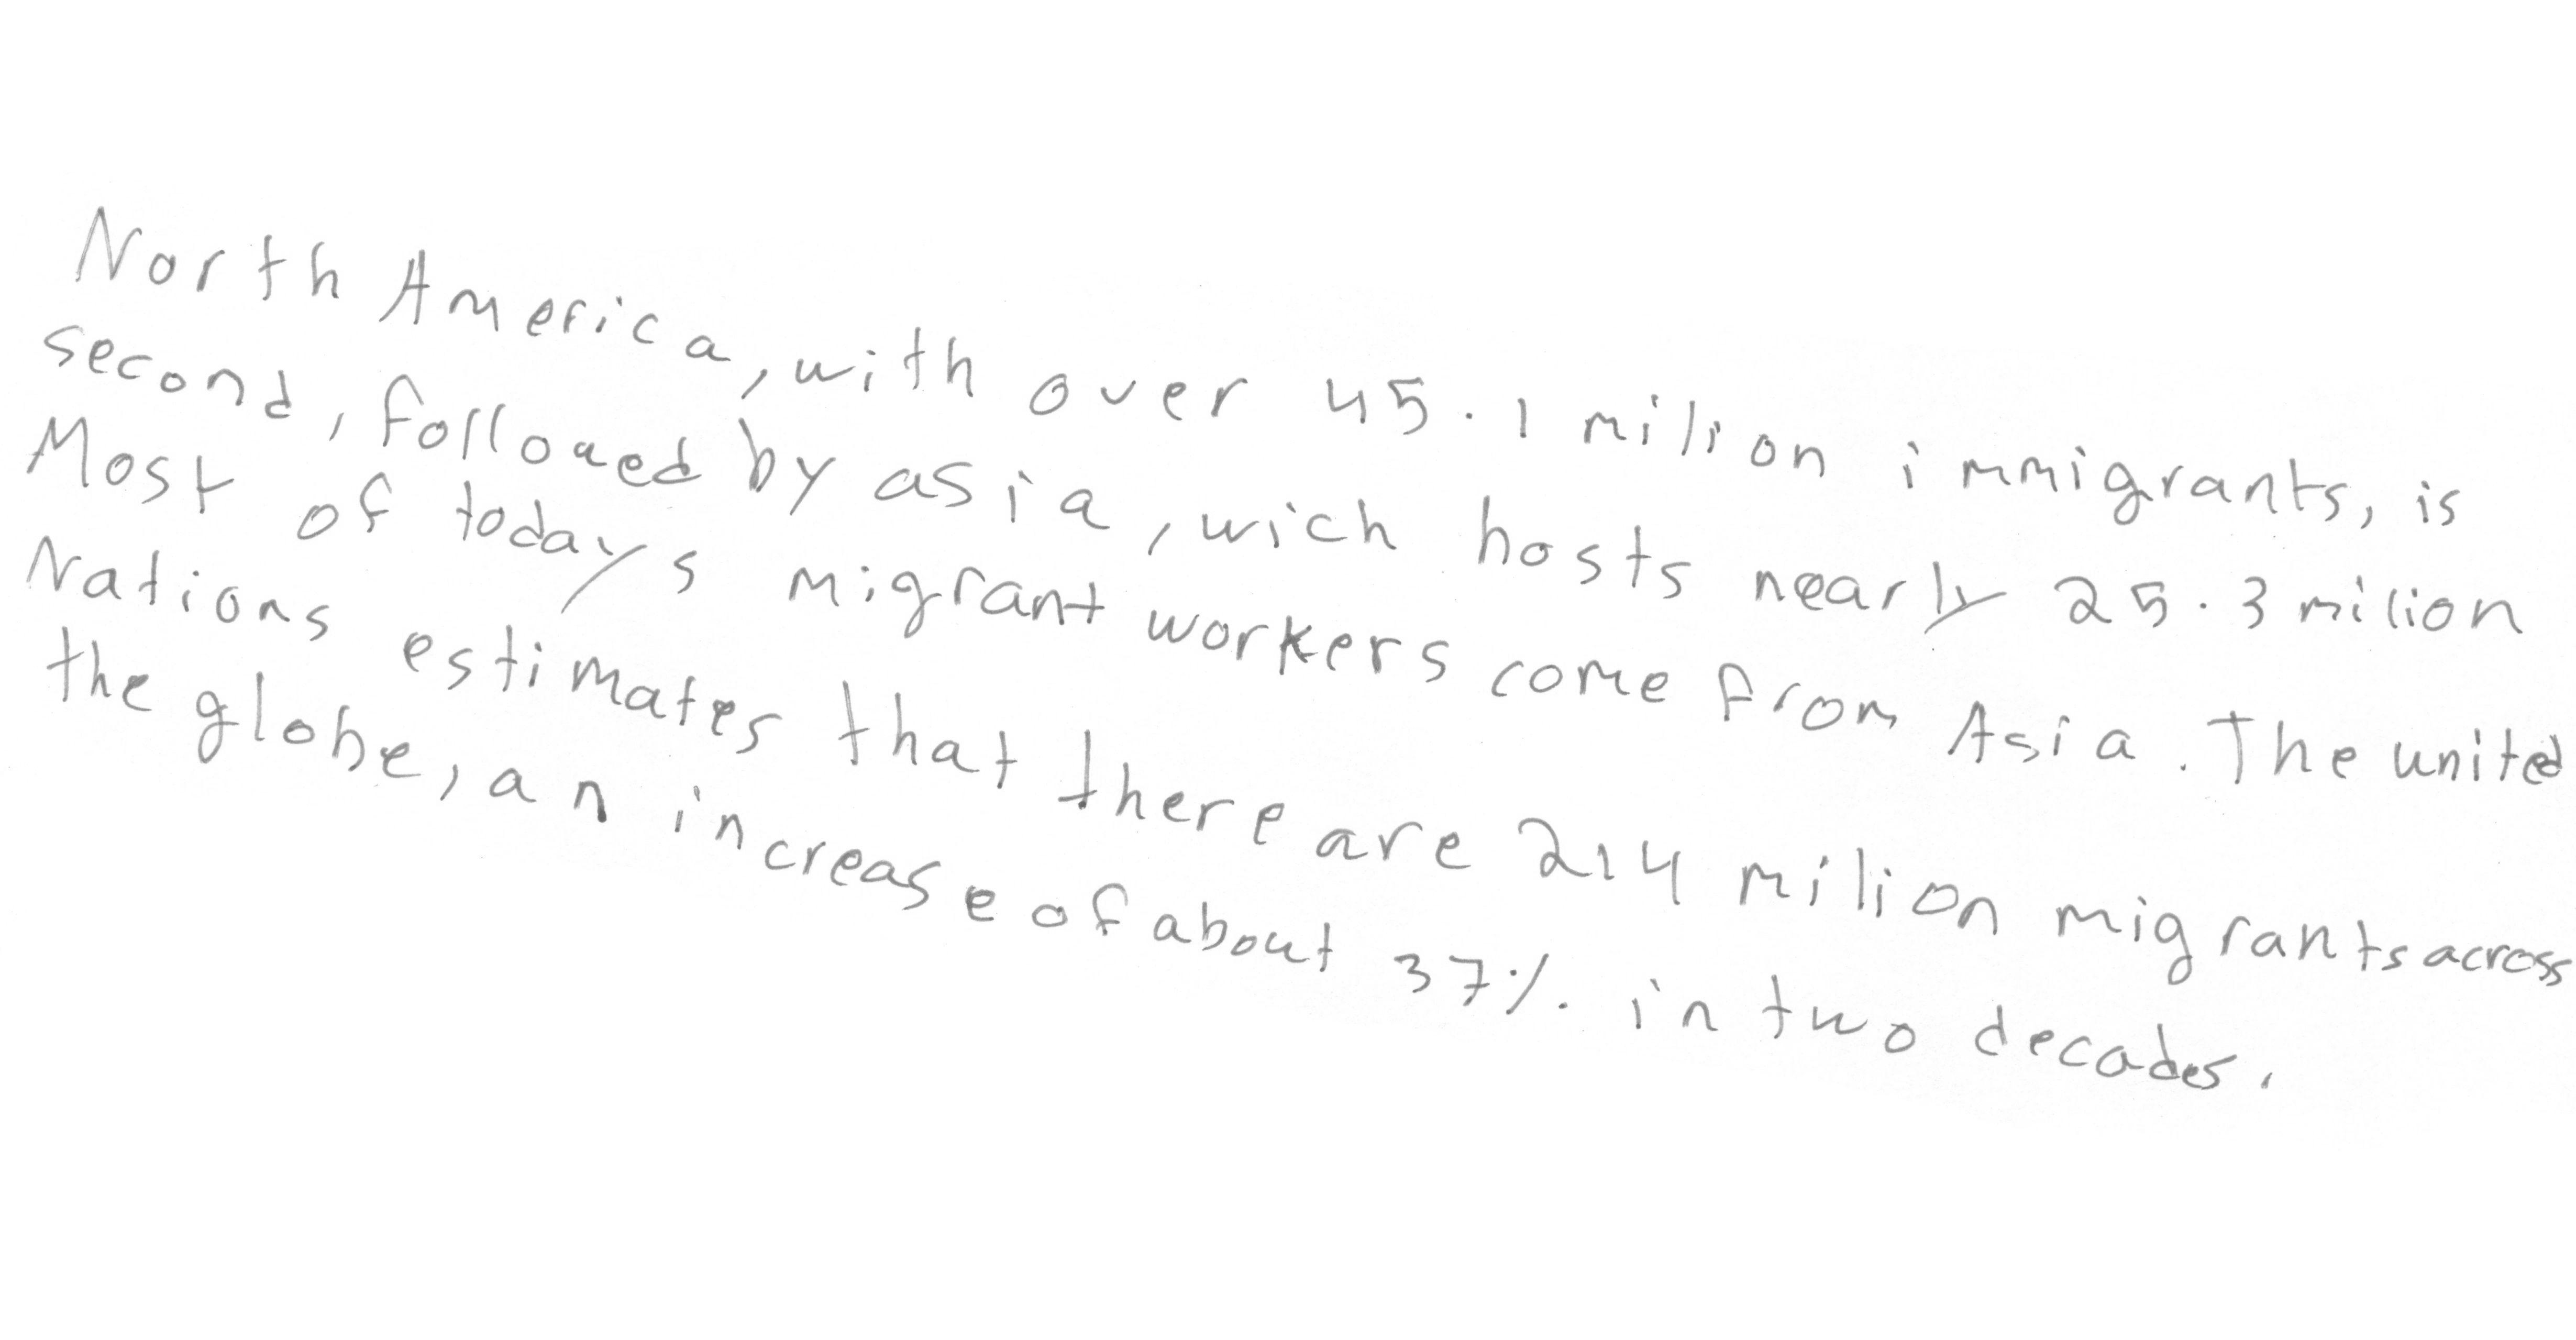 North America, with over 45.1 milion immigrants, is
second, followed by asia, wich hosts nearly 25.3 milion
Most of todays migrant workers come from Asia. The united
Nations estimates that there are 214 milion migrants across
the globe, an increase of about 37% in two decades.